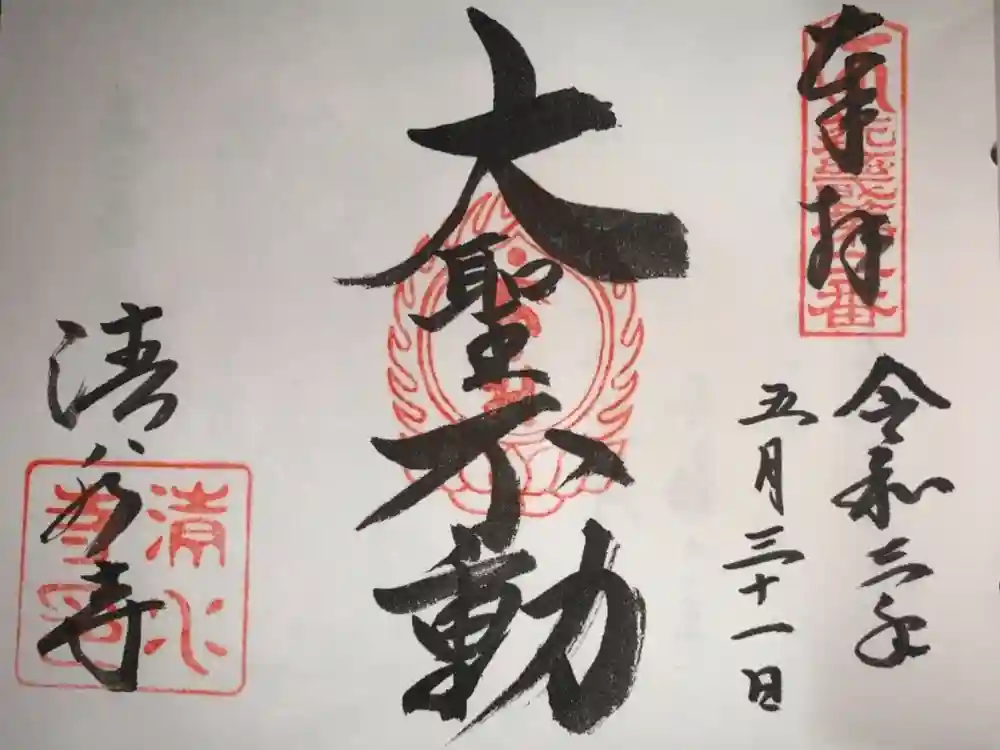 奉拝
令和三年
五月三十一日
大聖不動
清水寺
清水寺印